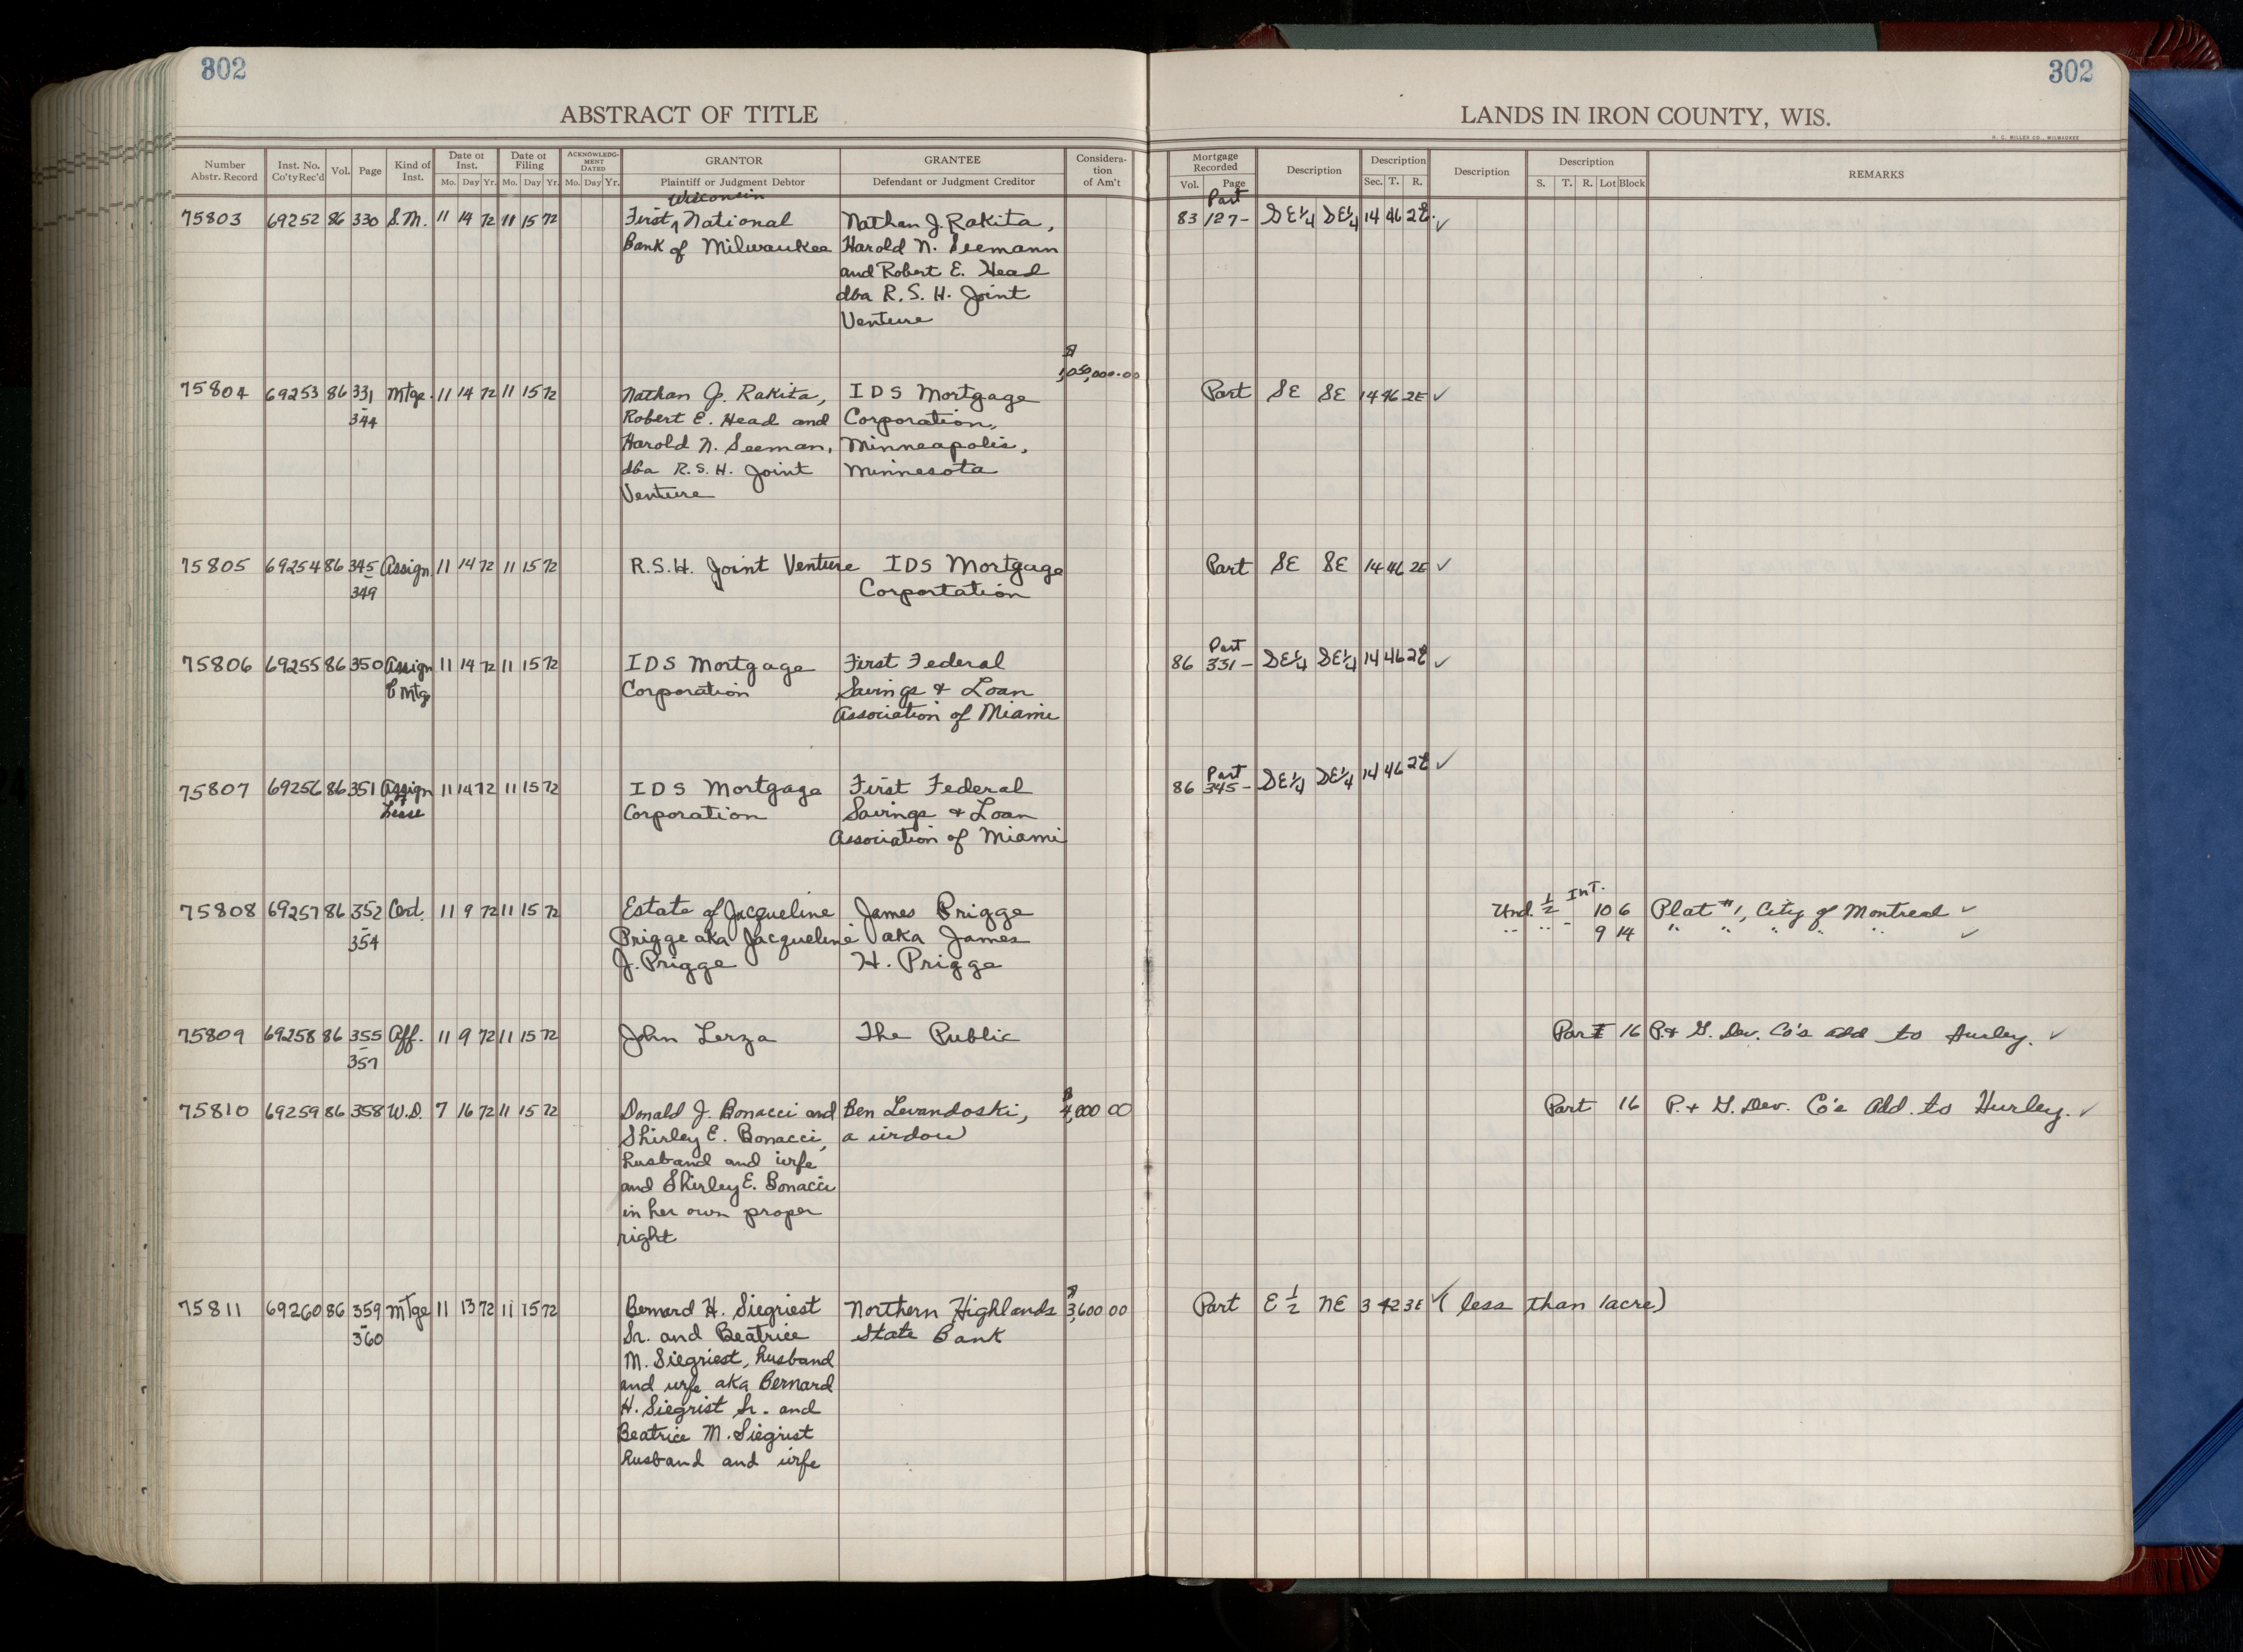 302
302
ABSTRACT OF TITLE
LANDS IN IRON COUNTY, WIS.
H. C. MILLER CO., MILWAUKEE
Number Abstr. Record Inst. No. Co'ty Rec'd Vol. Page Kind of Inst. Date of Inst. Mo. Day Yr. Date of Filing Mo. Day Yr. ACKNOWLEDGMENT DATED Mo. Day Yr. GRANTOR Plaintiff or Judgment Debtor GRANTEE Defendant or Judgment Creditor Consideration of Am't Mortgage Recorded Vol. Page Description Description Sec. T. R. Description Description S. T. R. Lot Block REMARKS
Wisconsin Part
75803 69252 86 330 S.M. 11 14 72 11 15 72 First ^ National Nathan J. Rakita, 83 127- SE1/4 SE1/4 14 46 2E ✓
Bank of Milwaukee Harold N. Seemann
and Robert E. Head
dba R. S. H. Joint
Venture
$
1,050,000.00
75804 69253 86 331 Mtge. 11 14 72 11 15 72 Nathan J. Rakita, IDS Mortgage Part SE SE 14 46 2E ✓
- 344 Robert E. Head and Corporation,
Harold N. Seeman, Minneapolis,
dba R.S.H. Joint Minnesota
Venture
75805 69254 86 345 Assign. 11 14 72 11 15 72 R.S.H. Joint Venture IDS Mortgage Part SE SE 14 46 2E ✓
- 349 Corportation
Part
75806 69255 86 350 Assign 11 14 72 11 15 72 IDS Mortgage First Federal 86 331- SE1/4 SE1/4 14 46 2E ✓
Mtg Corporation Savings & Loan
Association of Miami
Part
75807 69256 86 351 Assign 11 14 72 11 15 72 IDS Mortgage First Federal 86 345- SE1/4 SE1/4 14 46 2E ✓
Lease Corporation Savings & Loan
Association of Miami
Int.
75808 69257 86 352 Cert. 11 9 72 11 15 72 Estate of Jacqueline James Prigge Und. 1/2 10 6 Plat #1, City of Montreal ✓
- 354 Prigge aka Jacqueline aka James " " " 9 14 " " " " " ✓
J. Prigge H. Prigge
75809 69258 86 355 Aff. 11 9 72 11 15 72 John Lerza The Public Part 16 P. & G. Dev. Co's add to Hurley. ✓
- 357
$
75810 69259 86 358 W.D. 7 16 72 11 15 72 Donald J. Bonacci and Ben Levandoski, 4,000 00 Part 16 P. & G. Dev. Co's Add. to Hurley. ✓
Shirley E. Bonacci, a widow
husband and wife
and Shirley E. Bonacci
in her own proper
right
$
75811 69260 86 359 Mtge 11 13 72 11 15 72 Bernard H. Siegriest Northern Highlands 3,600 00 Part E 1/2 NE 3 42 3E ✓ (less than 1 acre)
- 360 Sr. and Beatrice State Bank
M. Siegriest, husband
and wife aka Bernard
H. Siegrist Sr. and
Beatrice M. Siegrist
husband and wife